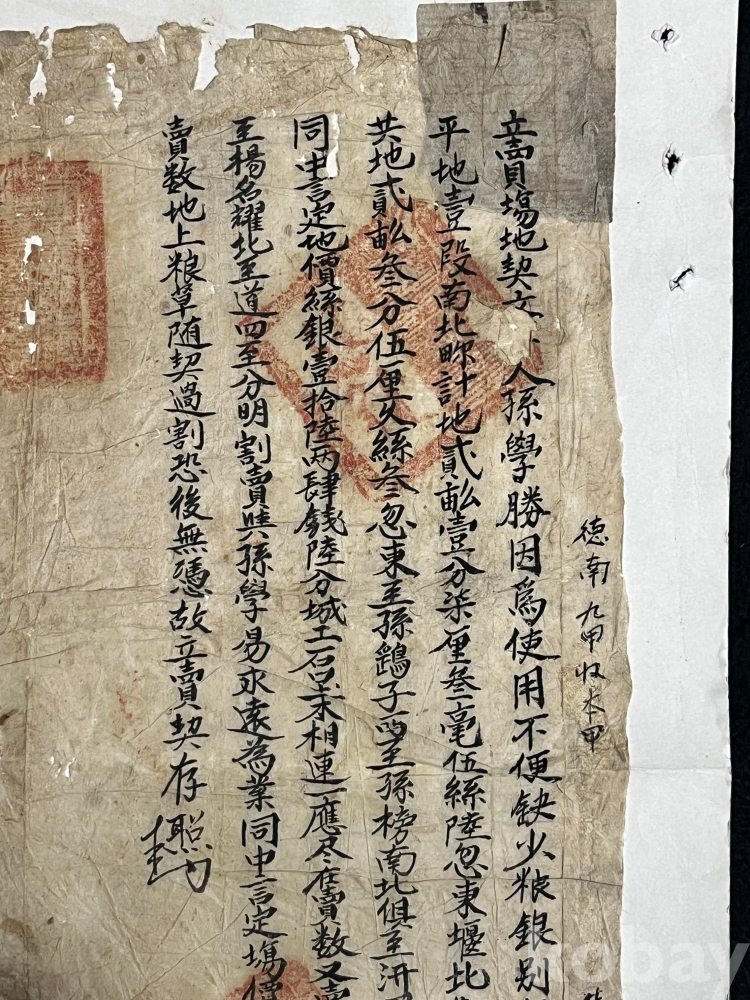 德南九甲收本甲
立賣塲地契文 人孫學勝因爲使用不便缺少粮銀别
平地壹段南北畛計地貳畝壹分柒厘叁毫伍絲陸忽東堰北
共地弍貳畝叁分伍厘 絲叁忽東至孫鵝子西至孫榜南北俱至
同中言定地價絲銀壹拾陸两肆錢陸分城土石 木相連一應尽在賣數又
至楊名耀北至道四至分明割賣與孫學易永遠為業同中言定塲價
賣数地上粮草随契過割恐後無憑故立賣契存照
kobay